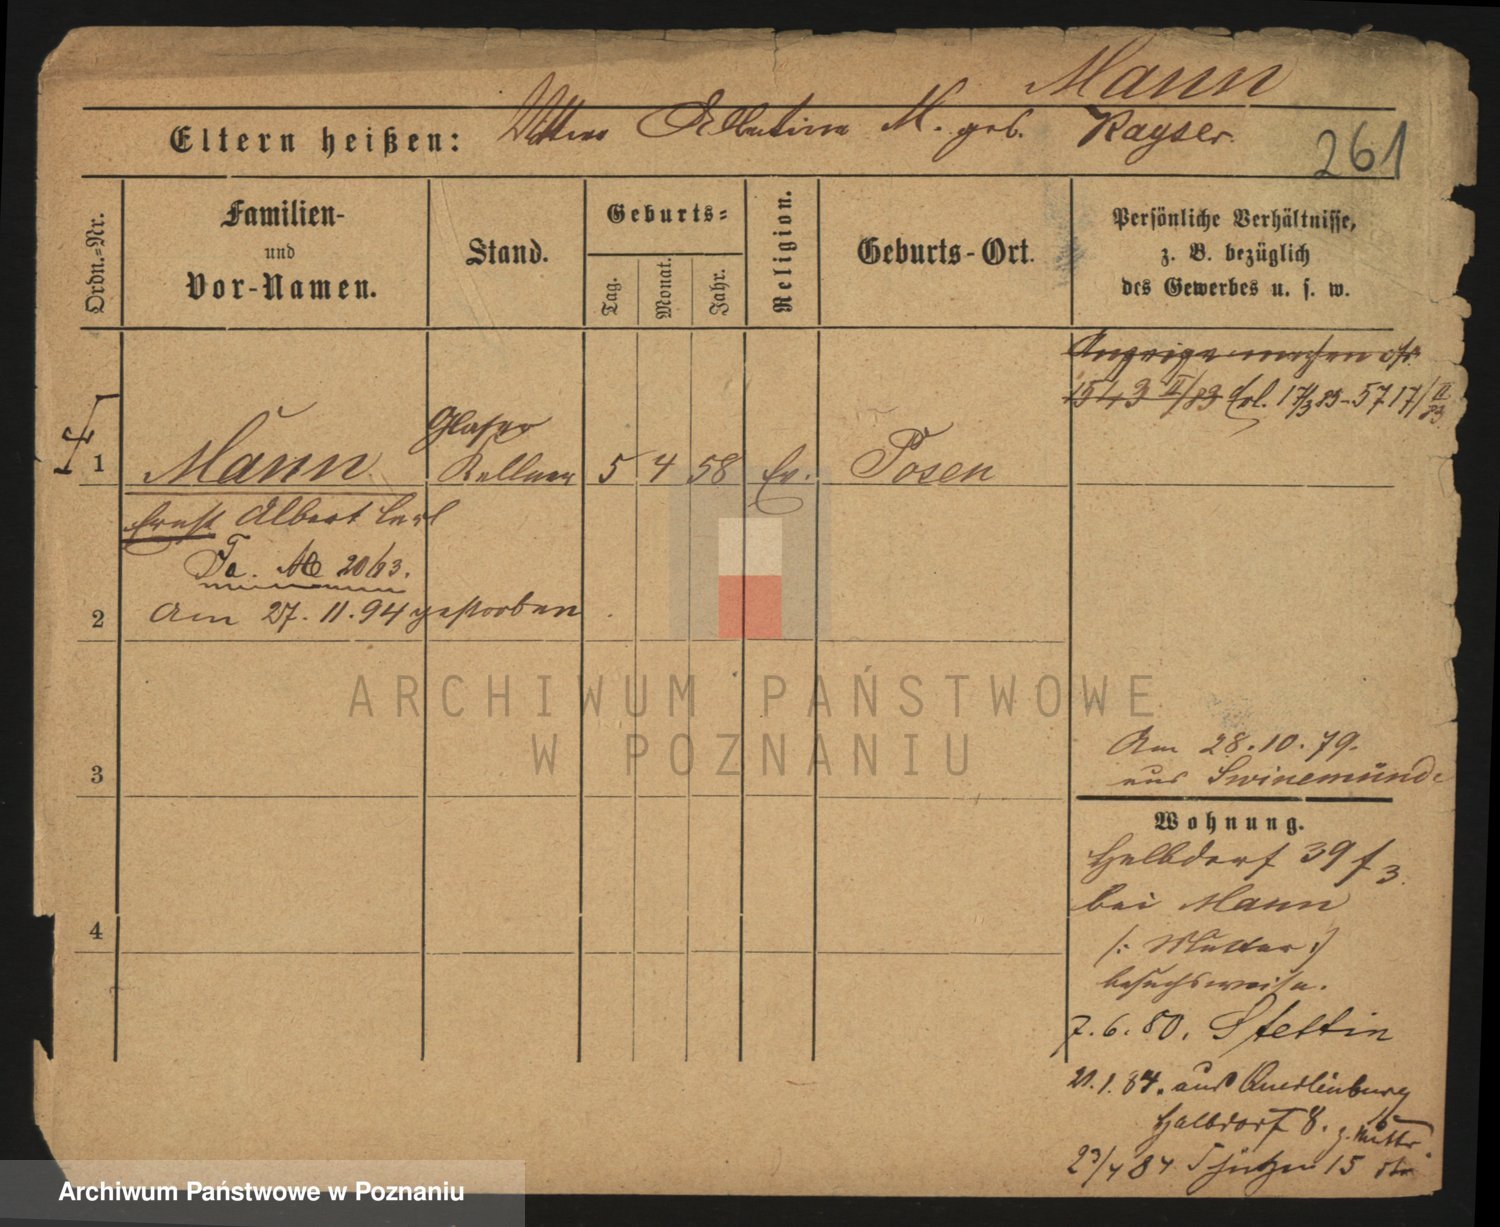 Mann
Eltern heißen: Wittwe Albertine M. geb. Kayser.
261
Ordn.-Nr.
Familien-
und
Vor-Namen.
Stand.
Geburts-
Tag.
Monat.
Jahr.
Religion.
Geburts-Ort.
Persönliche Verhältnisse,
z. B. bezüglich
des Gewerbes u. s. w.
Anzeige machen
1543 II/83 Erl. 17/3 83 - 5717/II 83
Glaser
1 Mann Kellner 5 4 58 Ev. Posen
Ernst Albert Carl
Fa. No 2063.
2 Am 27. 11. 94 gestorben.
ARCHIWUM PAŃSTWOWE
W POZNANIU
Am 28. 10. 79.
aus Swinemünde
3
Wohnung.
Halbdorf 39 f 3.
bei Mann
4
/: Mutter :/
besuchsweise.
7. 6. 80. Stettin
21. 1. 84. aus Quedlinburg
Halbdorf 8. b. Mutter
23/4 84 Schützen 15
Archiwum Państwowe w Poznaniu